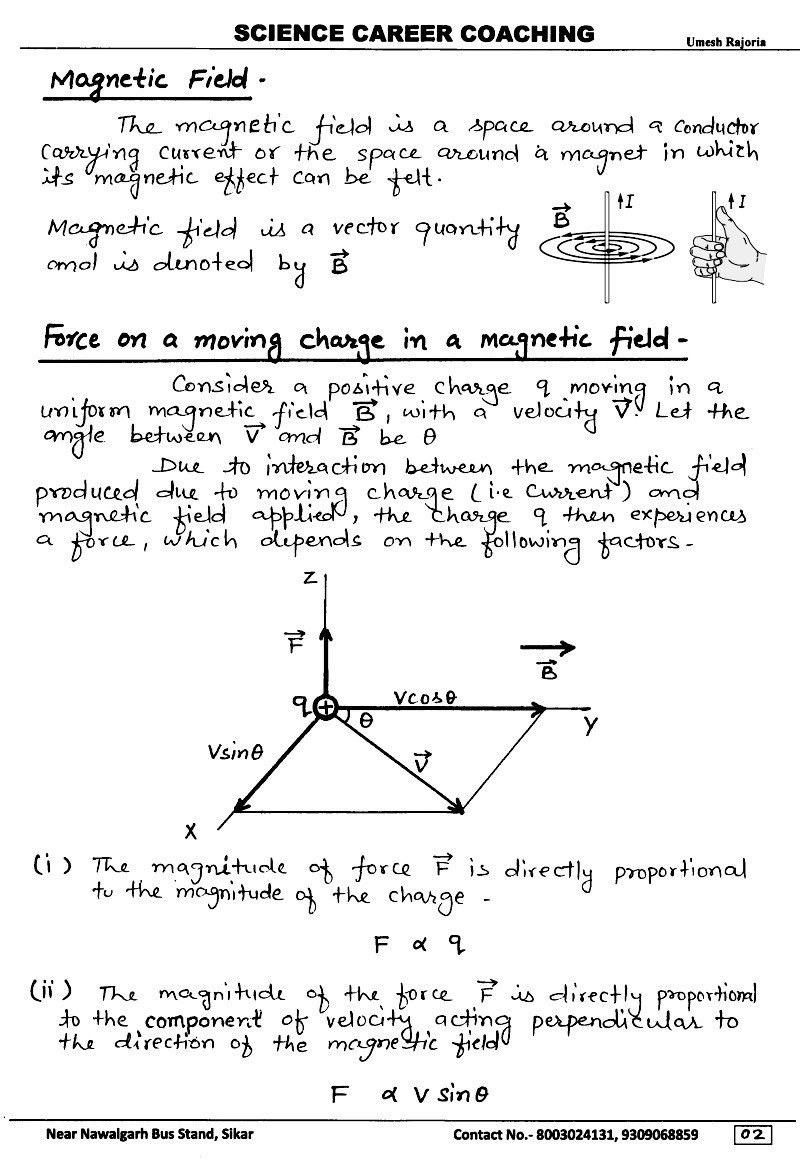 SCIENCE CAREER COACHING
Umesh Rajoria
Magnetic Field -
The magnetic field is a space around a conductor
carrying current or the space around a magnet in which
its magnetic effect can be felt.
Magnetic field is a vector quantity
and is denoted by B⃗
B⃗ ↑I ↑I
Force on a moving charge in a magnetic field -
Consider a positive charge q moving in a
uniform magnetic field B⃗, with a velocity V⃗. Let the
angle between V⃗ and B⃗ be θ
Due to interaction between the magnetic field
produced due to moving charge (i.e current) and
magnetic field applied, the charge q then experiences
a force, which depends on the following factors -
Z
F⃗
B⃗
q + Vcosθ
θ Y
Vsinθ V⃗
X
(i) The magnitude of force F⃗ is directly proportional
to the magnitude of the charge -
F ∝ q
(ii) The magnitude of the force F⃗ is directly proportional
to the component of velocity acting perpendicular to
the direction of the magnetic field
F ∝ V sinθ
Near Nawalgarh Bus Stand, Sikar Contact No.- 8003024131, 9309068859 02